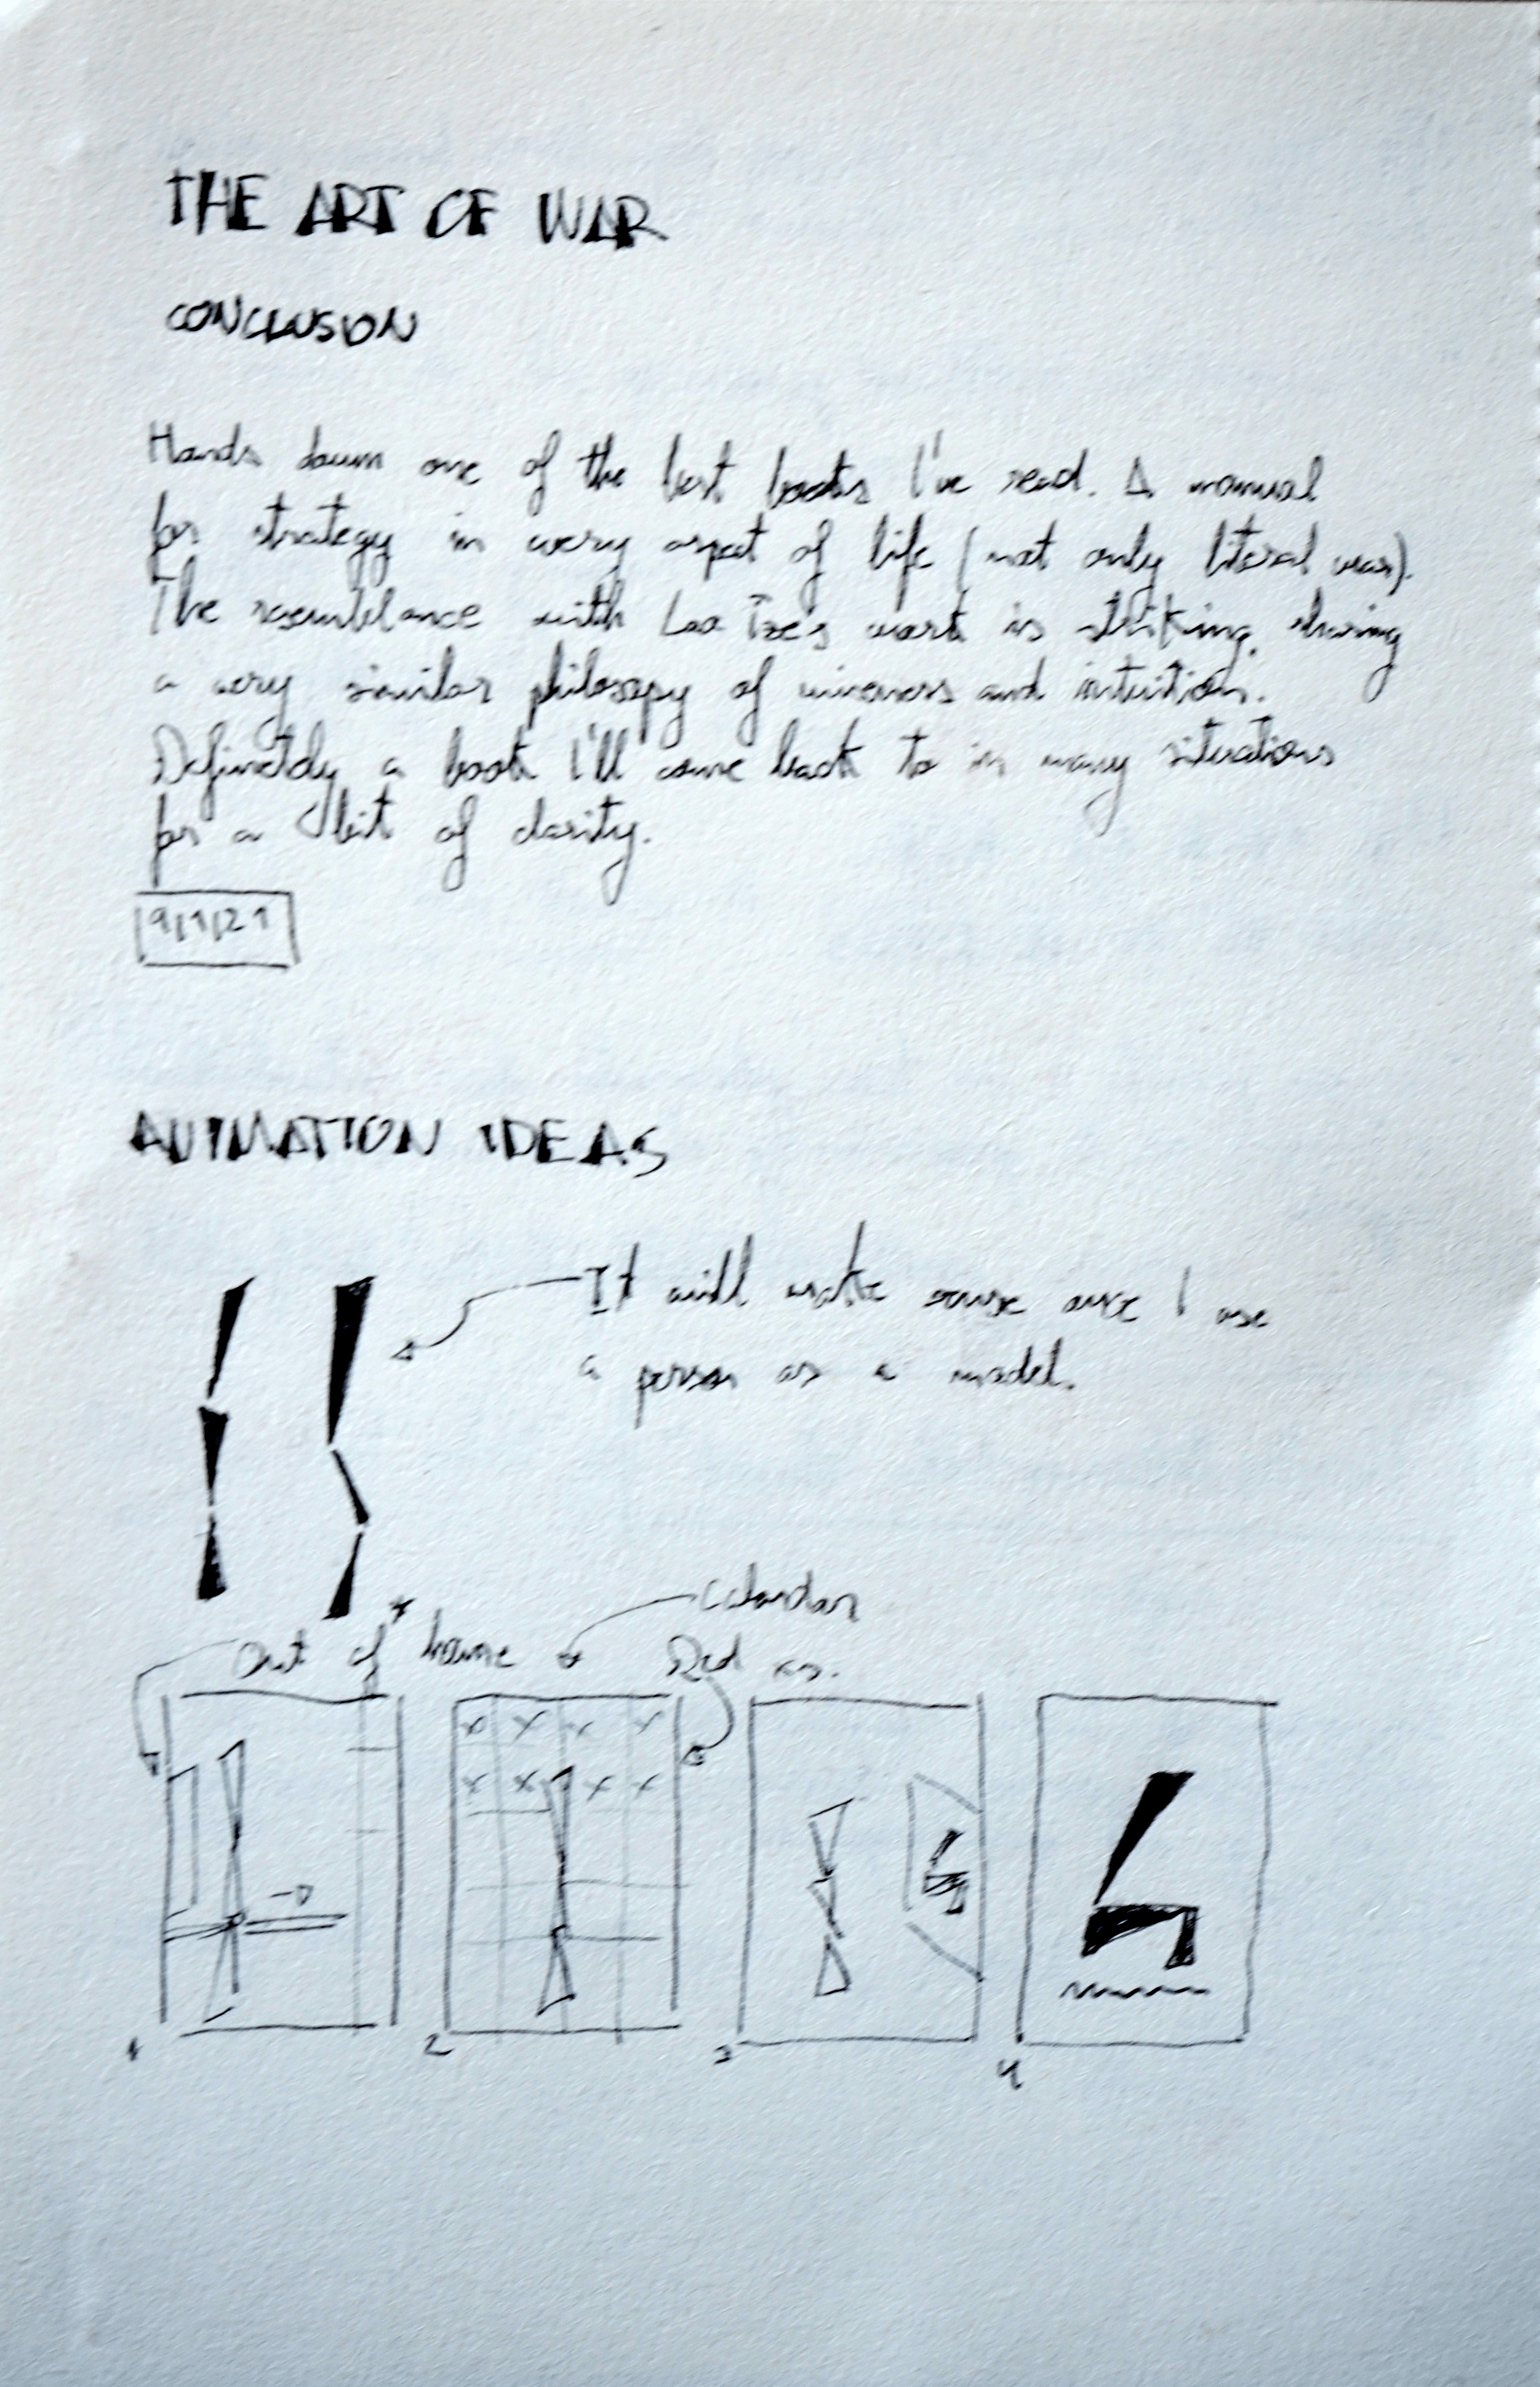 THE ART OF WAR
CONCLUSION
Hands down one of the best books I've read. A manual
for strategy in every aspect of life (not only literal war).
The resemblance with Lao Tze's work is striking, sharing
a very similar philosopy of and intuition.
Definetely a book I'll come back to in many situations
for a bit of clarity.
9/1/21
ANIMATION IDEAS
It will make sense once I use
a person as a model.
Calendar
Out of frame
Red
x x x x
x x x x
1 2 3 4